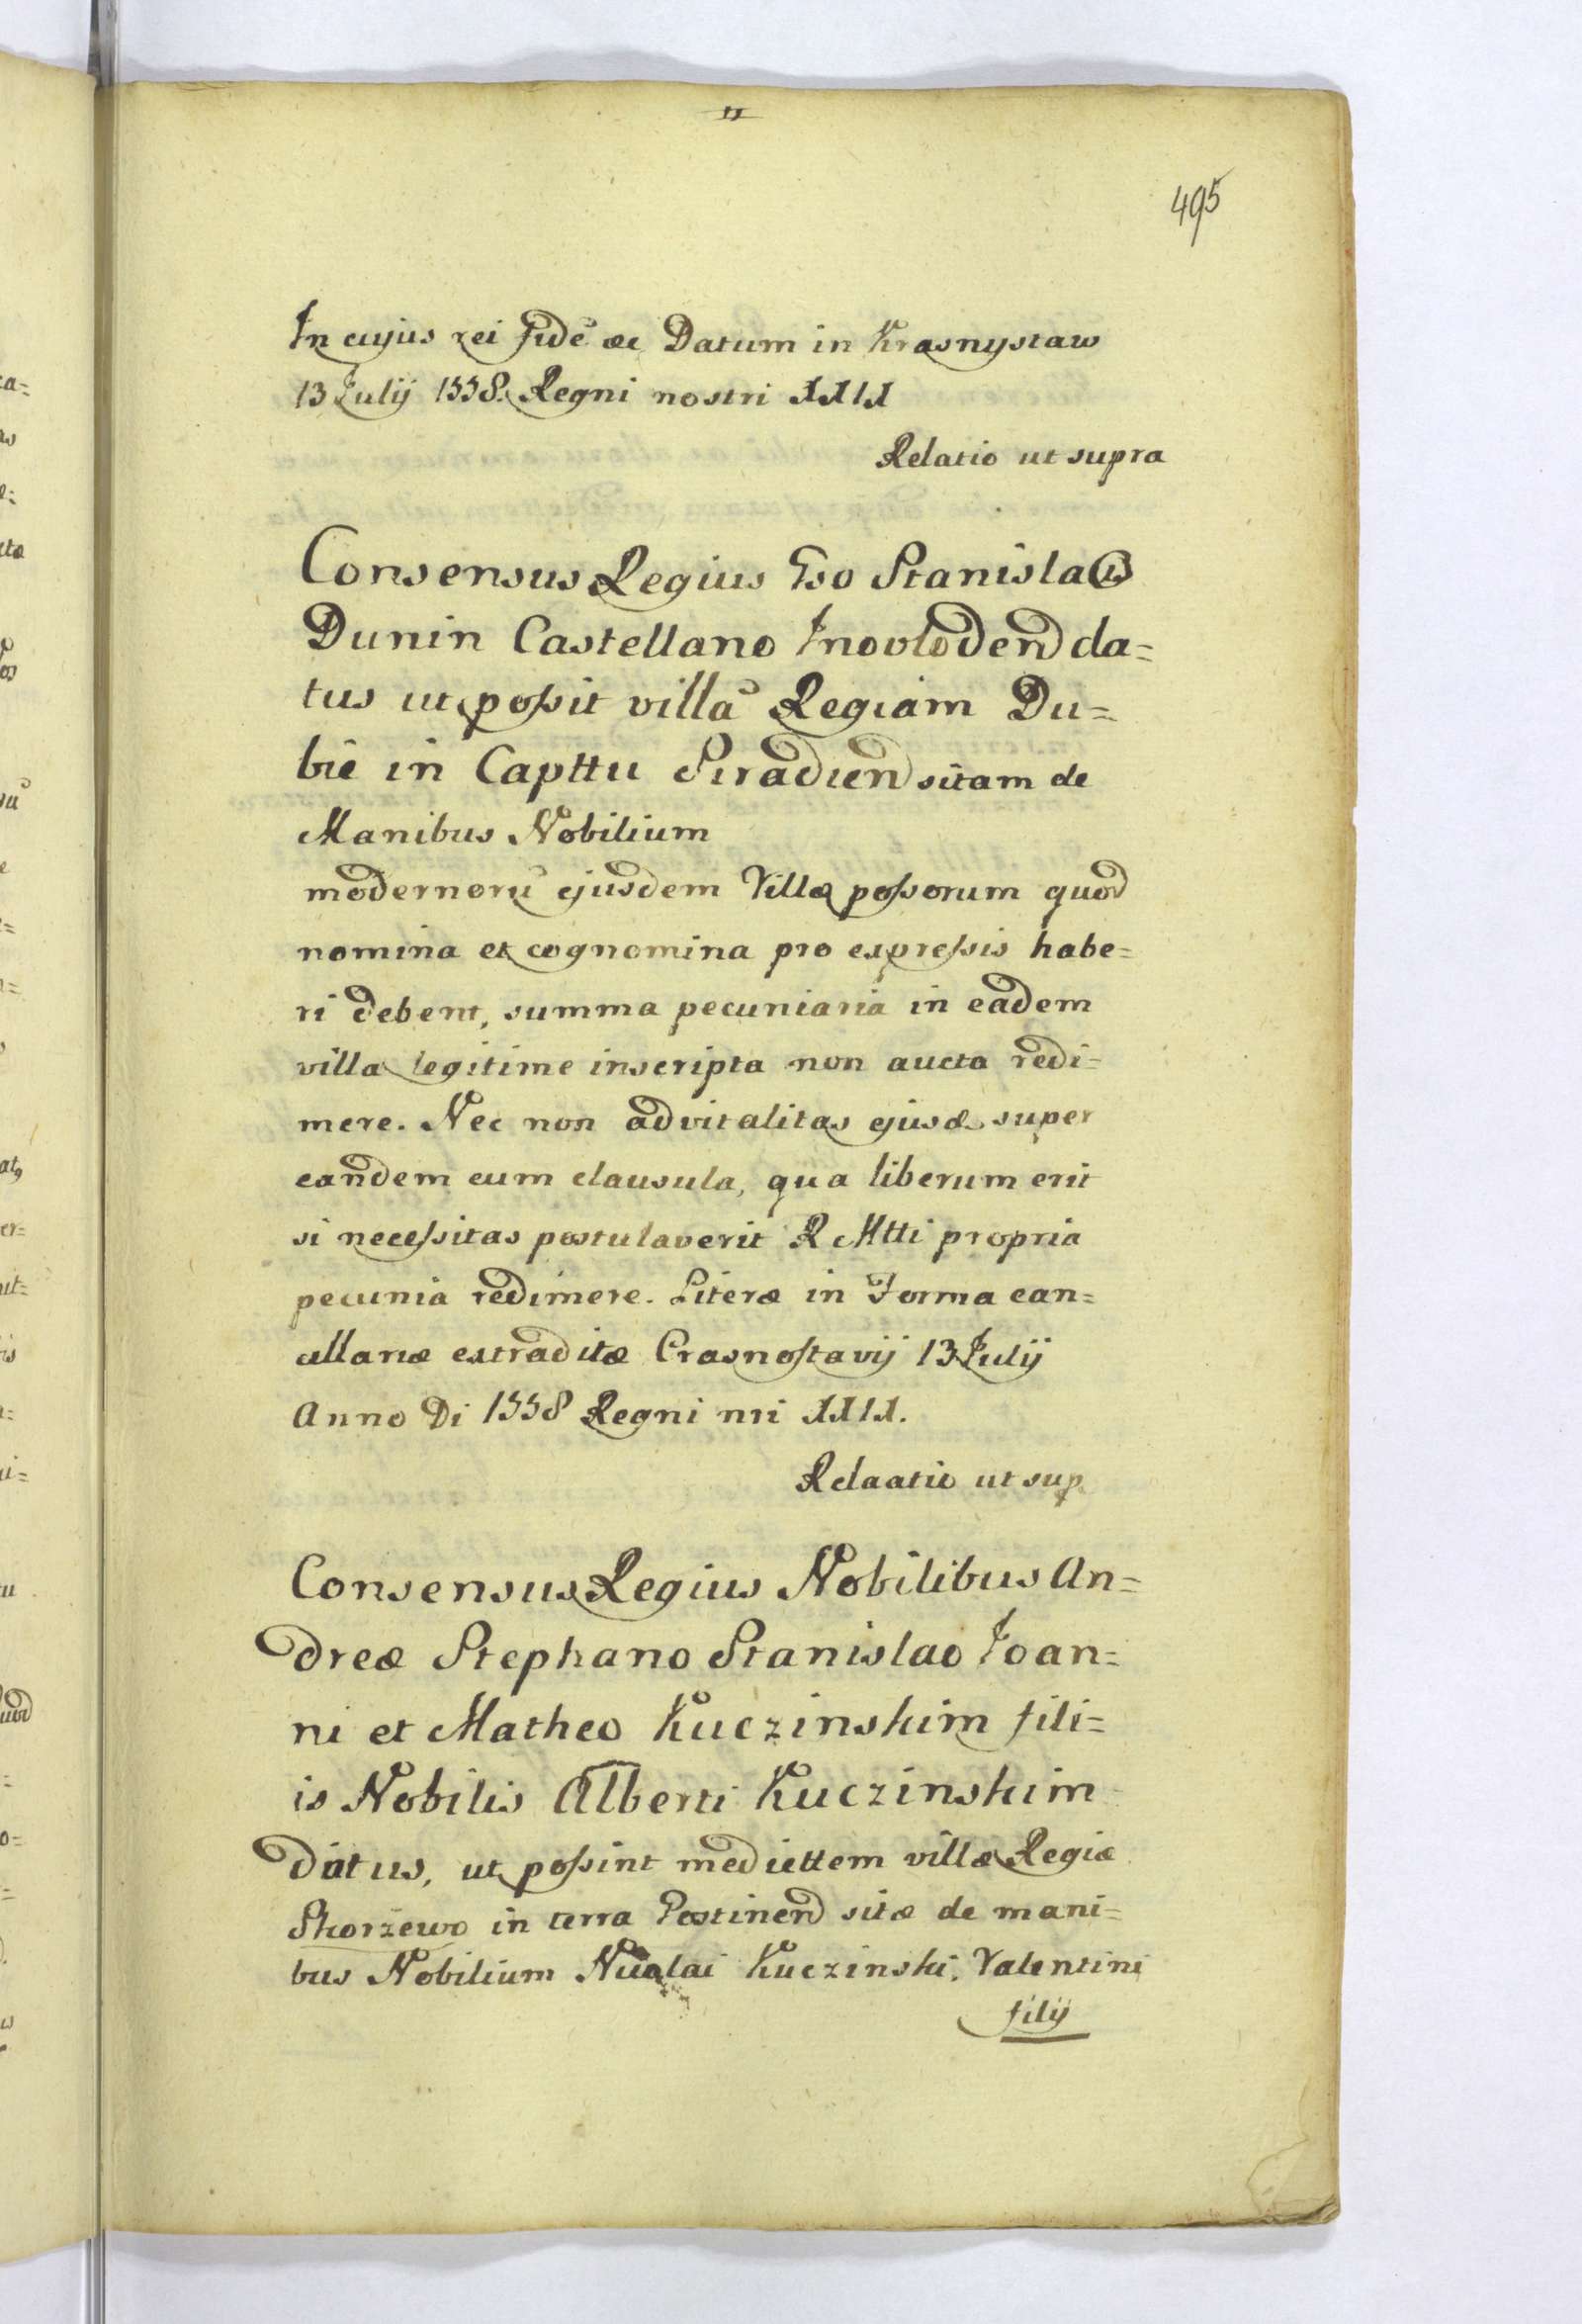 495
In cujus rei fidē ac Datum in Krasnystaw
13 Julij 1558. Regni nostri XXIX
Relatio ut supra
Consensus Regius Gso Stanislao
Dunin Castellano Inovloden da=
tus ut possit villā Regiam Du=
bie in Capttu Siradien sitam de
Manibus Nobilium
modernorū ejusdem Villæ possorum quod
nomina et cognomina pro expressis habe=
ri debent, summa pecuniaria in eadem
villa legitime inscripta non aucta redi=
mere. Nec non advitalitas ejusd super
eandem cum clausula, qua liberum erit
si necessitas postulaverit R Mtti propria
pecunia redimere. Literæ in Forma can=
cellariæ extraditæ Crasnostavij 13 Julij
Anno Di 1558 Regni nri XXIX.
Relaatio ut sup.
Consensus Regius Nobilibus An=
dreæ Stephano Stanislao Joan=
ni et Matheo Kuczinskim fili=
is Nobilis Alberti Kuczinskim
datus, ut possint mediettem villæ Regiæ
Skorzewo in terra Gostinen sitæ de mani=
bus Nobilium Nicolai Kuczinski, Valentini
filij